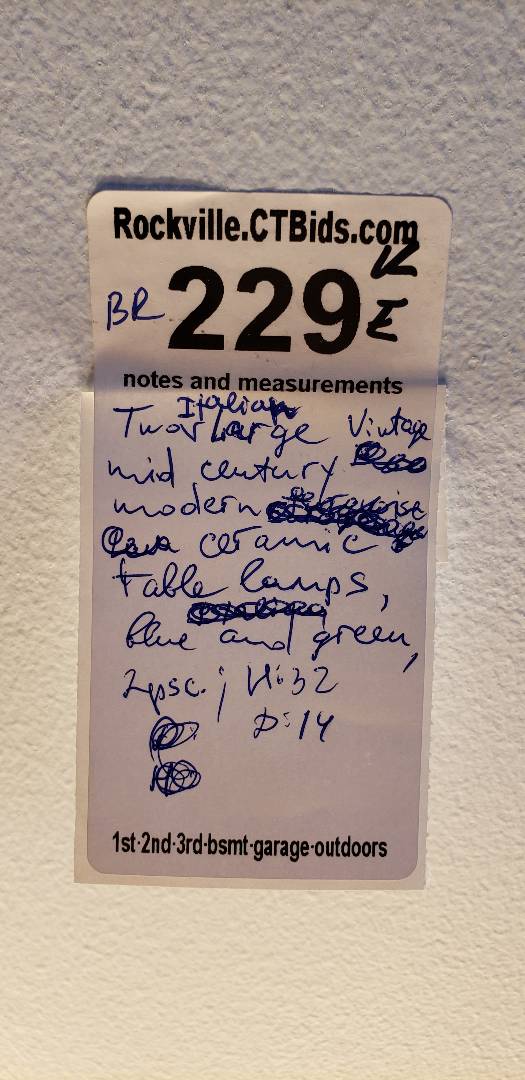 Rockville.CTBids.com
BR 229
notes and measurements
Italian
Two large Vintage
mid century
modern
ceramic
table lamps,
blue and green,
2psc.; H:32
D:14
1st·2nd·3rd·bsmt·garage·outdoors